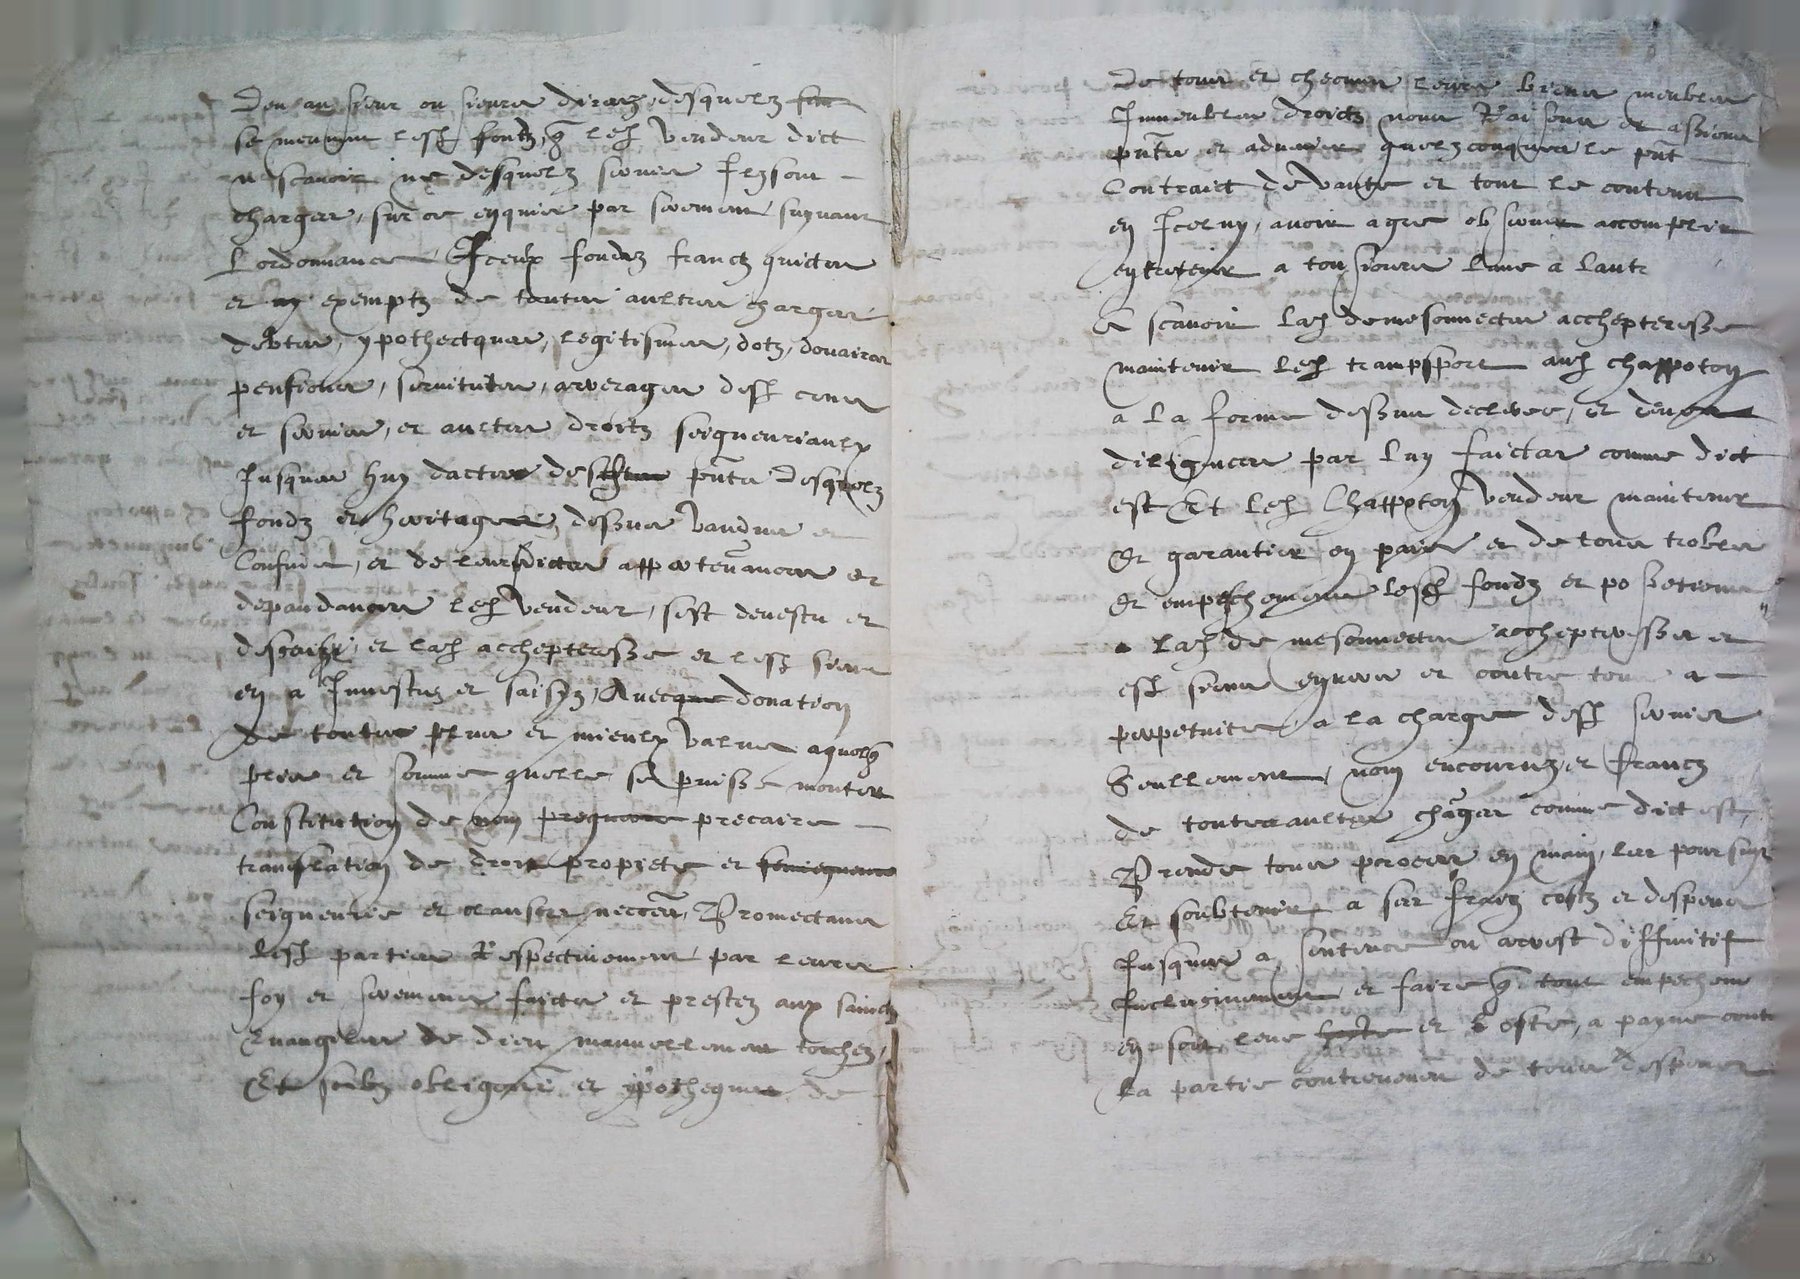 deu au sieur ou sieurs diretz desquelz
se meuvent lesd fondz q led vendeur dict
n scavoir ne desquelz servis ilz sont
charges, sur ce enquis par serement suyvant
Lordonnance Iceulx fondz francz quictes
et exemptz de toutes aultres charges
debtes, ypothectques, legitismes, dotz, douaires
pensions, servitutes, arverages desd cens
et servis, et aultres droitz seigneuriaulx
Jusques huy dacte des pntes desquelz
fondz et heritages dessus vandus et
Confines, et de leurs dictes appartenances et
depandances led vendeur, sest devestu et
dessaisy et lad acchepteresse et lesd siens
en a Investuz et saisyz, Avecque donation
de toutes plus et mieulx values a quelq
pris et somme quelle se puisse monter
Constitution de nom precaire
translation de droit propiete et
seigneurie et clauses neccers, Promectans
lesd parties Respectivement par leurs
foy et serement faictz et prestez aux sainctz
Evangiles de dieu manuellement touchez,
Et soubz obligaon et ypotheques de
De tous et chacuns leurs biens meubles
Immeubles droictz noms Raisons et assions
pnts et advenir quelzconques le pnt
Contraict de vante et tout le contenu
en Iceluy, avoir agre observer accomplir
entretenir a tousiours lune a laut
A scavoir lad demesonnectes acchepteresse
maintenir led trampsport aud Chappoton
a la forme dessus declere, et
diligences par luy faictes comme dict
est Et led Chappoton vendeur maintenir
Et garantir en paix et de tous trobles
Et empeschemens lesd fondz et possetions
a lad de mesonnectes acchepteresse et
esd siens envers et contre tous a
perpetuite a la charge desd servis
Seullement, non encouruz et francz
de toutes aultres charges comme dict est,
Prendre tous proces en main, les poursuyr
Et soubtenir a ses fraiz costz et despens
Jusques a sentence ou arrest diffinitif
Inclusivement et faire q tout empechem
en soit leve et oste, a payne cont
La partie contrevenen de tous despens